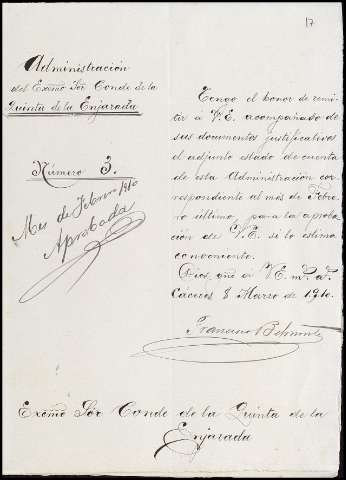 17
Administración
del Excmo Sór Conde de la
Quinta de la Enjarada
Número 3.
Mes de Febrero 1910
Aprobada
Tengo el honor de remi-
tir á V.E. acompañado de
sus documentos justificativos
el adjunto estado de cuenta
de esta Administración cor-
respondiente al mes de Febre-
ro último, para la aproba-
ción de V.E. si lo estima
conveniente.
Dios gue á V.E. m. a.
Cáceres 8 Marzo de 1910.
Excmo Sór Conde de la Quinta de la
Enjarada